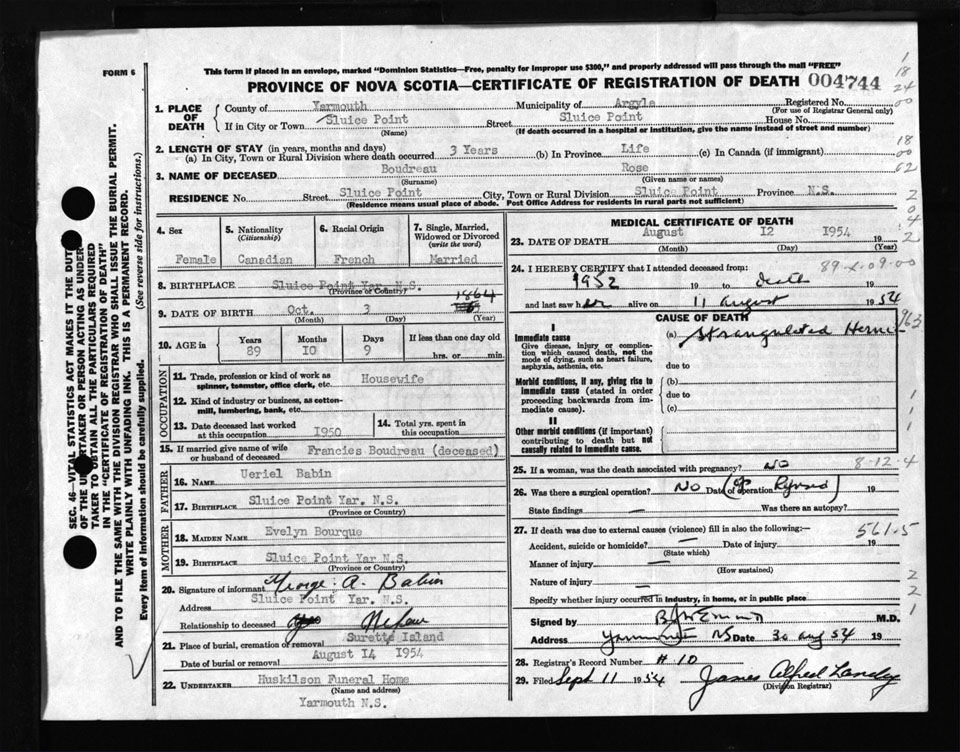 FORM 6
This form if placed in an envelope, marked "Dominion Statistics—Free, penalty for improper use $300," and properly addressed will pass through the mail "FREE"
PROVINCE OF NOVA SCOTIA—CERTIFICATE OF REGISTRATION OF DEATH 004744
SEC. 46—VITAL STATISTICS ACT MAKES IT THE DUTY
OF THE UNDERTAKER OR PERSON ACTING AS UNDER-
TAKER TO OBTAIN ALL THE PARTICULARS REQUIRED
IN THE "CERTIFICATE OF REGISTRATION OF DEATH"
AND TO FILE THE SAME WITH THE DIVISION REGISTRAR WHO SHALL ISSUE THE BURIAL PERMIT.
WRITE PLAINLY WITH UNFADING INK. THIS IS A PERMANENT RECORD.
Every item of information should be carefully supplied. (See reverse side for instructions.)
1. PLACE OF DEATH
County of Yarmouth Municipality of Argyle Registered No.
(For use of Registrar General only)
If in City or Town Sluice Point Street Sluice Point House No.
(Name) (If death occurred in a hospital or institution, give the name instead of street and number)
2. LENGTH OF STAY (in years, months and days)
(a) In City, Town or Rural Division where death occurred 3 Years (b) In Province Life (c) In Canada (if immigrant)
3. NAME OF DECEASED Boudreau Rose
(Surname) (Given name or names)
RESIDENCE No. Street Sluice Point City, Town or Rural Division Sluice Point Province N.S.
(Residence means usual place of abode. Post Office Address for residents in rural parts not sufficient)
4. Sex
Female
5. Nationality
(Citizenship)
Canadian
6. Racial Origin
French
7. Single, Married,
Widowed or Divorced
(write the word)
Married
8. BIRTHPLACE Sluice Point Yar. N.S.
(Province or Country)
9. DATE OF BIRTH Oct. 3 1864
(Month) (Day) (Year)
10. AGE in
Years 89
Months 10
Days 9
If less than one day old
hrs. or min.
OCCUPATION
11. Trade, profession or kind of work as
spinner, teamster, office clerk, etc. Housewife
12. Kind of industry or business, as cotton-
mill, lumbering, bank, etc.
13. Date deceased last worked
at this occupation 1950
14. Total yrs. spent in
this occupation
15. If married give name of wife
or husband of deceased Francies Boudreau (deceased)
FATHER
16. NAME Ueriel Babin
17. BIRTHPLACE Sluice Point Yar. N.S.
(Province or Country)
MOTHER
18. MAIDEN NAME Evelyn Bourque
19. BIRTHPLACE Sluice Point Yar N.S.
(Province or Country)
20. Signature of informant George. A. Babin
Address Sluice Point Yar. N.S.
Relationship to deceased Nephew
21. Place of burial, cremation or removal Surette Island
Date of burial or removal August 14 1954
22. UNDERTAKER Huskilson Funeral Home
(Name and address)
Yarmouth N.S.
MEDICAL CERTIFICATE OF DEATH
23. DATE OF DEATH August 12 1954 19
(Month) (Day) (Year)
24. I HEREBY CERTIFY that I attended deceased from: 89-2-09-00
1952 19 to death 19
and last saw her alive on 11 august 19 54
CAUSE OF DEATH
I
Immediate cause
Give disease, injury or complica-
tion which caused death, not the
mode of dying, such as heart failure,
asphyxia, asthenia, etc.
(a) Strangulated Hernia
due to
Morbid conditions, if any, giving rise to
immediate cause (stated in order
proceeding backwards from im-
mediate cause).
(b)
due to
(c)
II
Other morbid conditions (if important)
contributing to death but not
causally related to immediate cause.
25. If a woman, was the death associated with pregnancy? NO 8-12-4
26. Was there a surgical operation? NO Date of operation 19
State findings Was there an autopsy?
27. If death was due to external causes (violence) fill in also the following:— 561-5
Accident, suicide or homicide? — Date of injury 19
(State which)
Manner of injury —
(How sustained)
Nature of injury —
Specify whether injury occurred in industry, in home, or in public place
Signed by M.D.
Address Yarmouth NS Date 30 aug 54 19
28. Registrar's Record Number # 10
29. Filed Sept 11 19 54 James Alfred Landry
(Division Registrar)